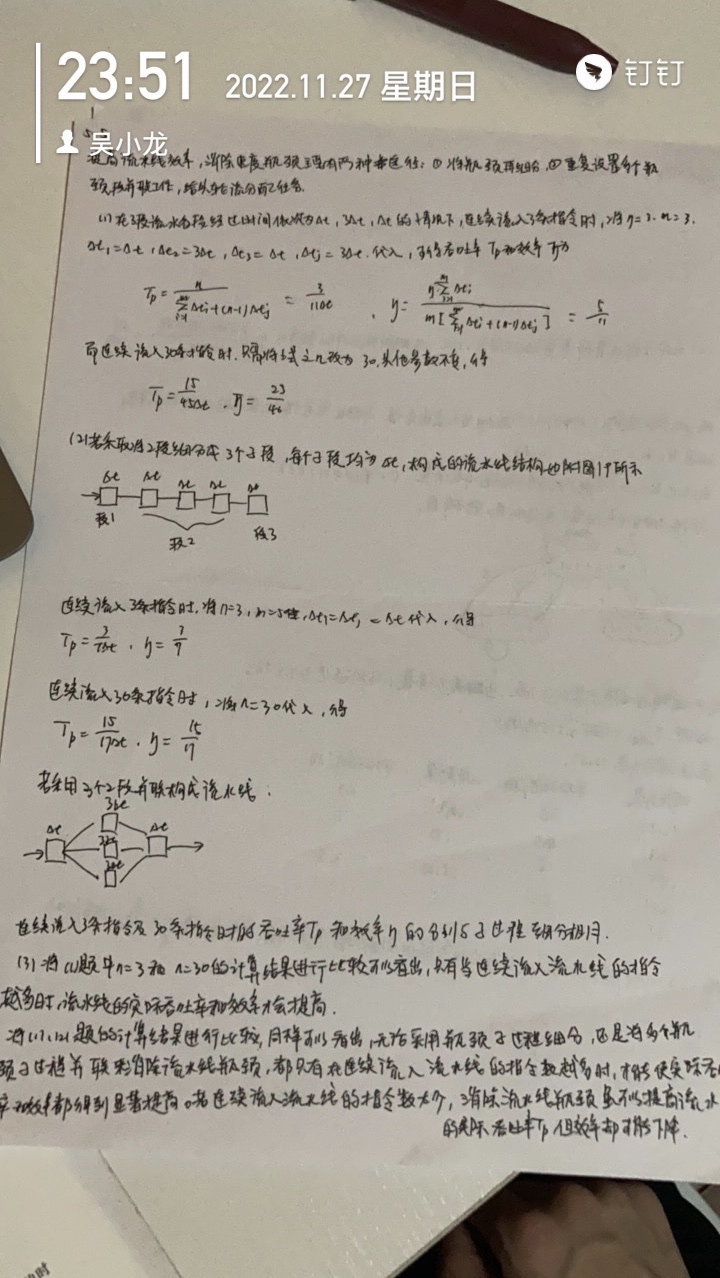 23:51 2022.11.27 星期日
钉钉
吴小龙
提高流水线效率,消除速度瓶颈主要有两种途径:①将瓶颈再细分,②重复设置多个瓶
颈段并联工作,给其分配任务.
(1) 在3段流水各段经过时间依次为Δt,3Δt,Δt的情况下,连续流入3条指令时,将m=3.n=3.
Δt₁=Δt,Δt₂=3Δt,Δt₃=Δt,Δtj=3Δt.代入,可得吞吐率Tp和效率η为
Tp = n / (∑Δti+(n-1)Δtj) = 3/11Δt , η = n∑Δti / m[∑Δti+(n-1)Δtj] = 5/11
而连续流入30条指令时,只需将上式之n改为30,其他参数不变,得
Tp = 15/45Δt . η = 23/46
(2)若采取将2段细分成3个子段,每个子段均为Δt,构成的流水线结构如附图17所示
Δt Δt Δt Δt Δt
段1 段2 段3
连续流入3条指令时,将n=3,m=5,Δti=Δtj=Δt代入,得
Tp = 3/7Δt . η = 3/7
连续流入30条指令时,将n=30代入,得
Tp = 15/17Δt . η = 15/17
若采用3个2段并联构成流水线:
3Δt
Δt 3Δt Δt
3Δt
连续流入3条指令及30条指令时的吞吐率Tp和效率η的分别与子过程细分相同.
(3) 将(1)题中n=3和n=30的计算结果进行比较可以看出,只有当连续流入流水线的指令
越多时,流水线的实际吞吐率和效率才会提高.
将(1),(2)题的计算结果进行比较,同样可以看出,无论采用瓶颈子过程细分,还是将多个瓶
颈子过程并联来消除流水线瓶颈,都只有在连续流入流水线的指令数越多时,才能使实际吞
率和效率都得到显著提高。若连续流入流水线的指令数太少,消除流水线瓶颈虽可以提高流水
的实际吞吐率Tp 但效率却可能下降.